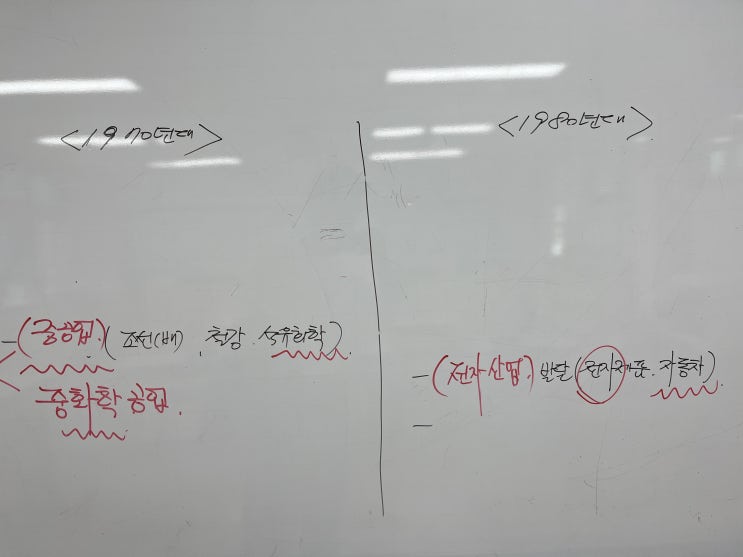 <1970년대>
-(중공업.)(조선(배), 철강. 석유화학).
중화학 공업.
<1980년대>
-(전자산업.) 발달(전자제품. 자동차)
-